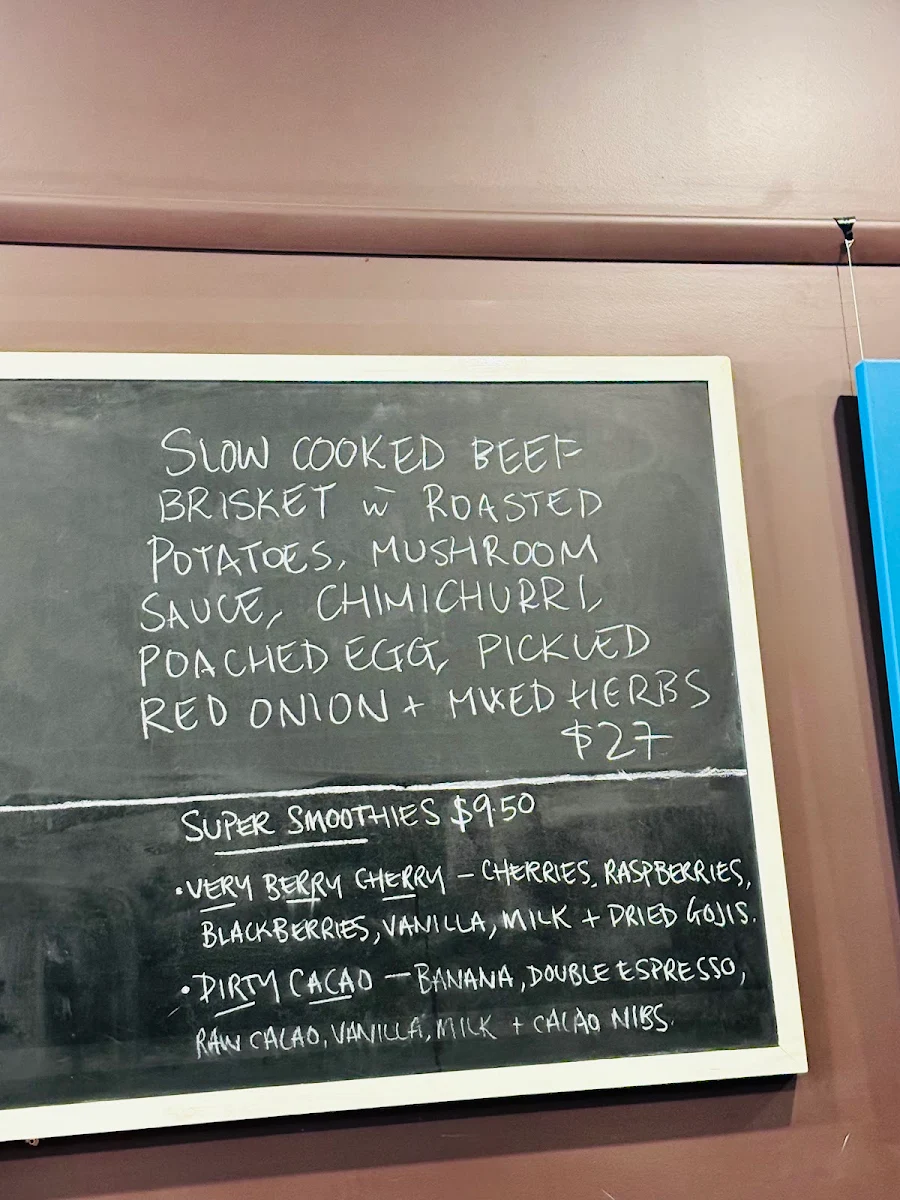 SLOW COOKED BEEF
BRISKET w̄ ROASTED
POTATOES, MUSHROOM
SAUCE, CHIMICHURRI,
POACHED EGG, PICKLED
RED ONION + MIXED HERBS
$27
SUPER SMOOTHIES $9.50
• VERY BERRY CHERRY – CHERRIES, RASPBERRIES,
BLACKBERRIES, VANILLA, MILK + DRIED GOJIS.
• DIRTY CACAO – BANANA, DOUBLE ESPRESSO,
RAW CACAO, VANILLA, MILK + CACAO NIBS.